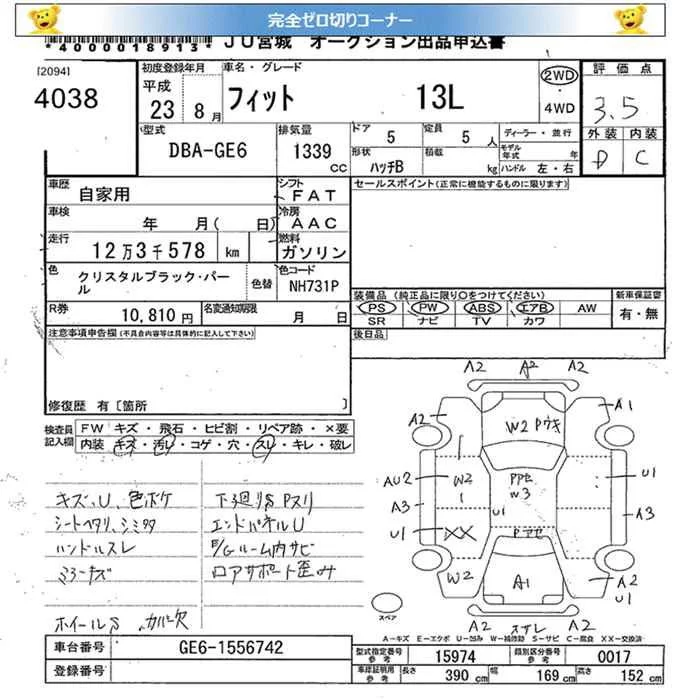 完全ゼロ切りコーナー
*4000018913*
JU宮城 オークション出品申込書
[2094]
4038
初度登録年月
平成
23 8月
車名・グレード
フィット 13L
2WD
・
4WD
評価点
3.5
外装 内装
D C
型式
DBA-GE6
排気量
1339
CC
ドア 5
定員 5 人
形状 ハッチB
積載 kg
ディーラー・並行
モデル年式 年
ハンドル 左・右
車歴
自家用
シフト
FAT
車検
年 月( 日)
冷房
AAC
走行
12万3千578 km
燃料
ガソリン
色
クリスタルブラック・パール
色替
色コード
NH731P
R券
10,810 円
名変通知期限
月 日
セールスポイント(正常に機能するものに限ります)
装備品(純正品に限り○をつけてください)
PS PW ABS エアB AW
SR ナビ TV カワ
新車保証書
有・無
後日品
注意事項申告欄(不具合内容等は具体的に記入して下さい)
修復歴 有〔箇所 〕
検査員記入欄
FW キズ・飛石・ヒビ割・リペア跡・×要
内装 キズ・汚レ・コゲ・穴・スレ・キレ・破レ
キズ、U、色ボケ
シートヘタリ、シミ多
ハンドルスレ
ミラーキズ
ホイールS カバー欠
下廻りS Pスリ
エンドパネルU
E/Gルーム内サビ
ロアサポート歪み
A2 A2 A2
A2 A1
W2 Pウキ
AU2 W2 U1
A3 A3
W3
U1 U1
XX
W2 A1 A2
U1
A2 スサレ A2
スペア
A-キズ E-エクボ U-凹み W-補修跡 S-サビ C-腐食 XX-交換済
車台番号
GE6-1556742
登録番号
型式指定番号
参考
15974
類別区分番号
参考
0017
車庫証明用
参考
長さ 390 cm
幅 169 cm
高さ 152 cm